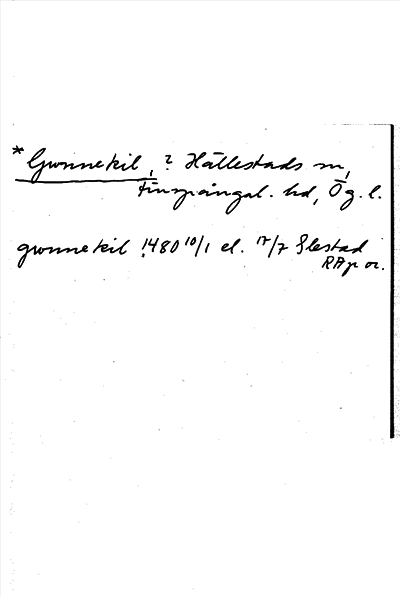 * Gwnnekil, ? Hällestads sn,
Finspångal. hd, Ög. l.
gwnnekil 1480 10/1 el. 17/7 Slestad
RAp or.